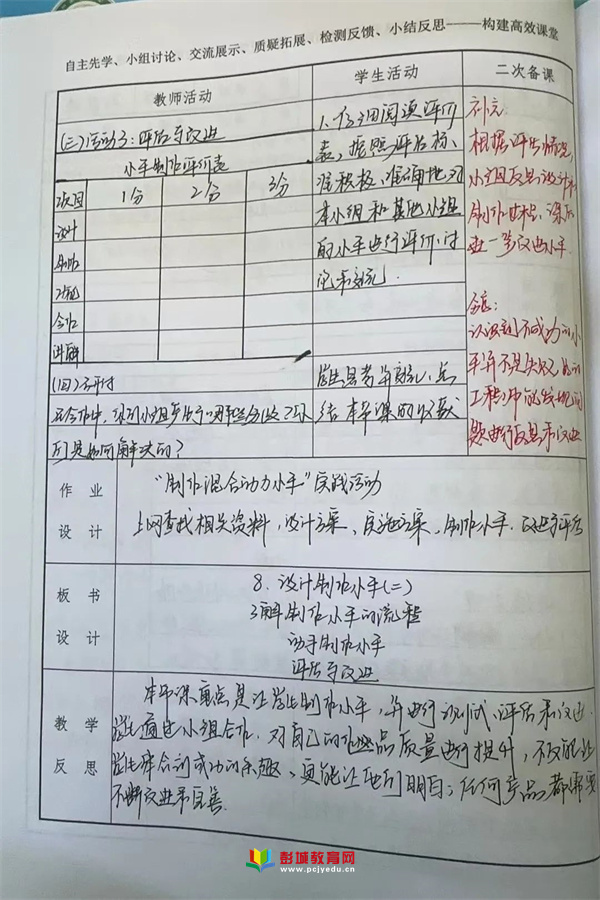 自主先学、小组讨论、交流展示、质疑拓展、检测反馈、小结反思——构建高效课堂
教师活动
学生活动
二次备课
(三)活动3:评估与改进
小车制作评价表
项目 1分 2分 3分
设计
制作
测试
合作
讲解
1、仔细阅读评价
表,按照评估标
准积极、准确地对
本小组和其他小组
的小车进行评价,讨
论和交流.
补充:
根据评估情况,
小组反思设计和
制作
一步改进小车.
认识到不成功的小
车并不是失败,
工程师能发现问
题进行反思和改进
(四)研讨
在合作中,
们是如何解决的?
学生思考并交流,总
结本节课的收获
作业
设计
“制作混合动力小车”实践活动
上网查找相关资料,设计方案、实施方案、制作小车、改进与评估
板书
设计
8. 设计制作小车(二)
了解制作小车的流程
动手制作小车
评估与改进
教学
反思
本节课重点是让学生制作小车,并进行测试、评估和改进.
学生通过小组合作,对自己的作品质量进行提升,不仅能让
学生体会到成功的乐趣、更能让他们明白:任何产品都需要
不断改进和完善.
彭城教育网
www.pcjyedu.cn